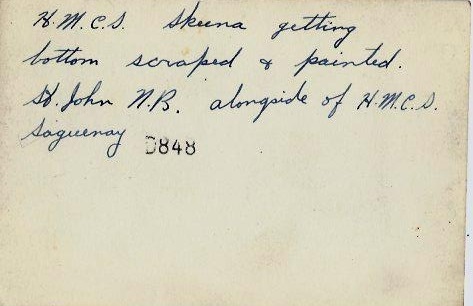 H.M.C.S. Skeena getting
bottom scraped & painted.
St. John N.B. alongside of H.M.C.S.
Saguenay D848